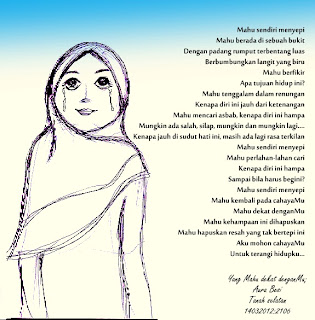 Mahu sendiri menyepi
Mahu berada di sebuah bukit
Dengan padang rumput terbentang luas
Berbumbungkan langit yang biru
Mahu berfikir
Apa tujuan hidup ini?
Mahu tenggalam dalam renungan
Kenapa diri ini jauh dari ketenangan
Mahu mencari asbab, kenapa diri ini hampa
Mungkin ada salah, silap, mungkin dan mungkin lagi....
Kenapa jauh di sudut hati ini, masih ada lagi rasa terkilan
Mahu sendiri menyepi
Mahu perlahan-lahan cari
Kenapa diri ini hampa
Sampai bila harus begini?
Mahu sendiri menyepi
Mahu kembali pada cahayaMu
Mahu dekat denganMu
Mahu kehampaan ini dihapuskan
Mahu hapuskan resah yang tak bertepi ini
Aku mohon cahayaMu
Untuk terangi hidupku...
Yang Mahu dekat denganMu;
Aura Besi
Tanah selatan
14032012;2106